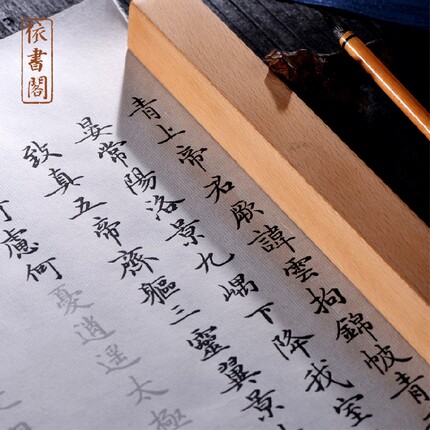 依書閣
青上帝君厥諱雲拘錦帔青
晏常陽洛景九嵎下降我室
致真五帝齊軀三靈翼景
慮何憂逍遥太極